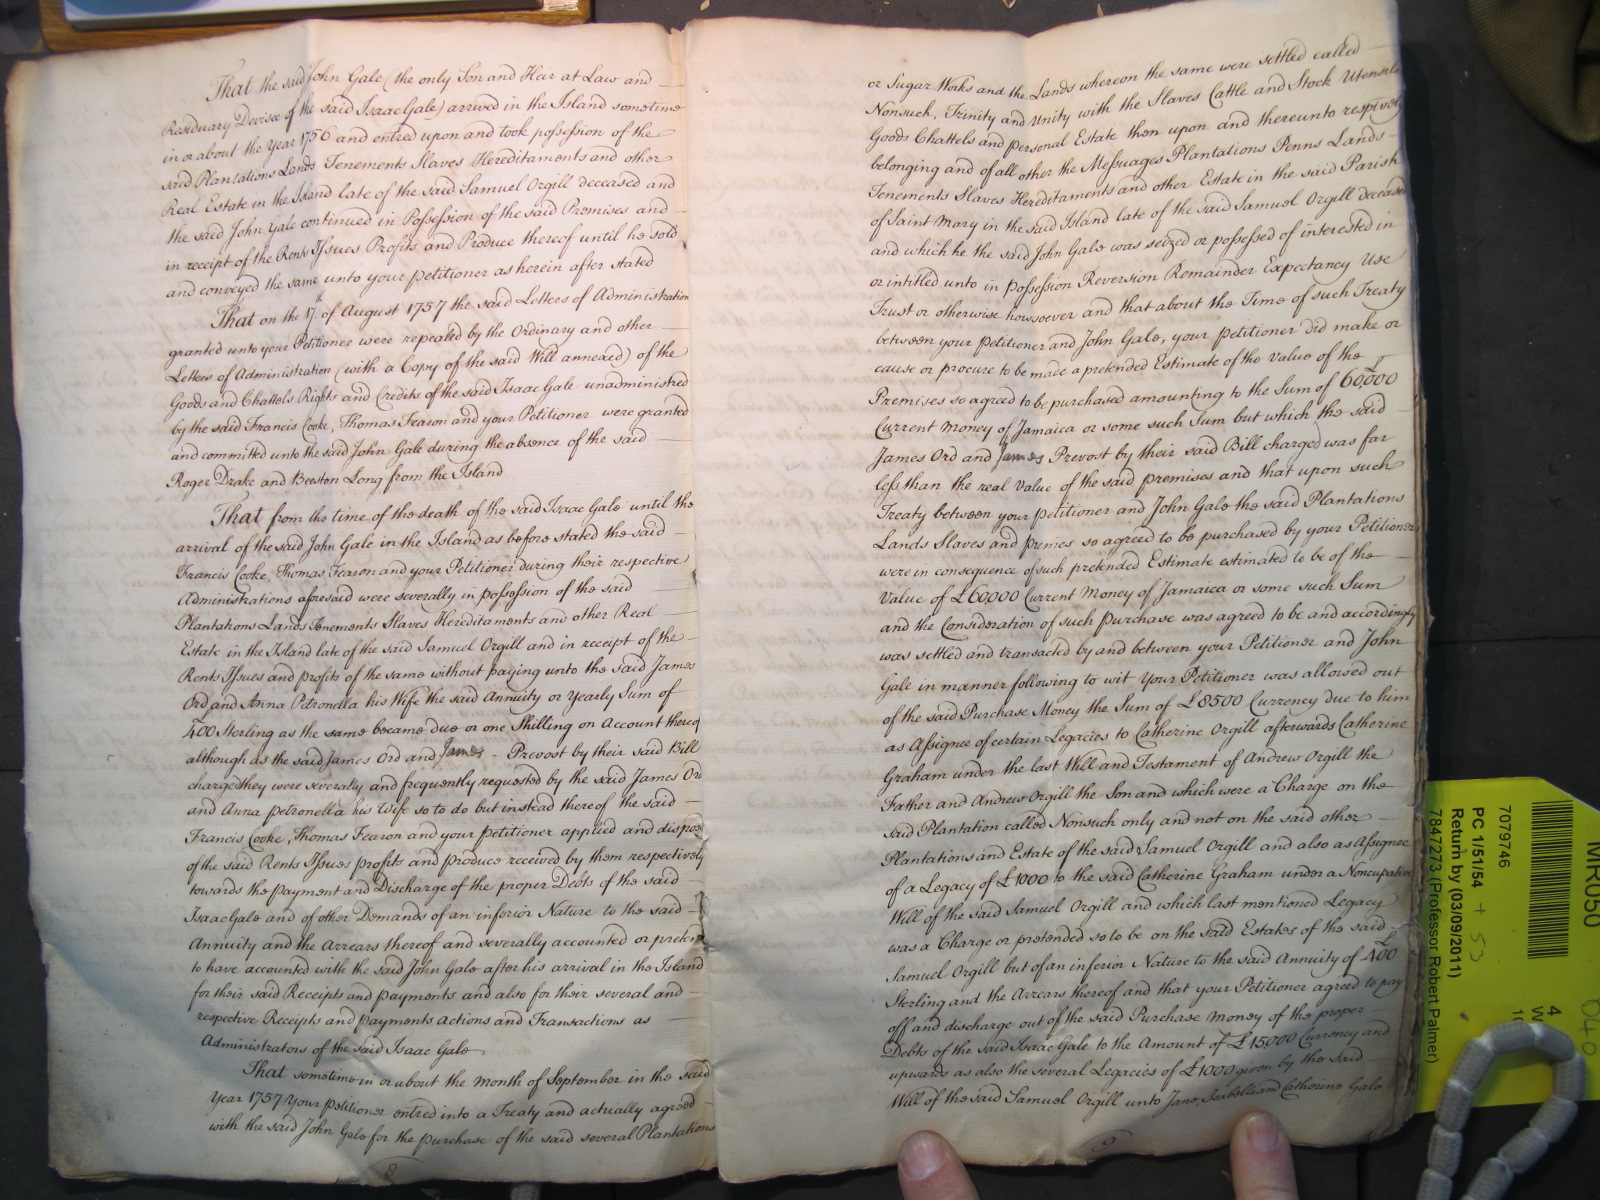 That the said John Gale (the only Son and Heir at Law and
Residuary Devisee of the said Isaac Gale) arrived in the Island sometime
in or about the Year 1756 and entred upon and took possession of the
said Plantations Lands Tenements Slaves Hereditaments and other
Real Estate in the Island late of the said Samuel Orgill deceased and
the said John Gale continued in Possession of the said Premises and
in receipt of the Rents Issues Profits and Produce thereof until he sold
and conveyed the same unto your Petitioner as herein after stated
That on the 17th of August 1757 the said Letters of Administration
granted unto your Petitioner were repealed by the Ordinary and other
Letters of Administration (with a Copy of the said Will annexed) of the
Goods and Chattels Rights and Credits of the said Isaac Gale unadministred
by the said Francis Cooke, Thomas Fearon and your Petitioner were granted
and committed unto the said John Gale during the absence of the said
Roger Drake and Beeston Long from the Island
That from the time of the death of the said Isaac Gale until the
arrival of the said John Gale in the Island as before stated the said
Francis Cooke, Thomas Fearon and your Petitioner during their respective
Administrations aforesaid were severally in possession of the said
Plantations Lands Tenements Slaves Hereditaments and other Real
Estate in the Island late of the said Samuel Orgill and in receipt of the
Rents Issues and profits of the same without paying unto the said James
Ord and Anna Petronella his Wife the said Annuity or Yearly Sum of
£400 Sterling as the same became due or one Shilling on Account thereof
although as the said James Ord and James Prevost by their said Bill
charge they were severally and frequently requested by the said James Ord
and Anna Petronella his Wife so to do but instead thereof the said
Francis Cooke, Thomas Fearon and your Petitioner applied and dispos
of the said Rents Issues profits and produce received by them respectively
towards the payment and Discharge of the proper Debts of the said
Isaac Gale and of other Demands of an inferior Nature to the said
Annuity and the Arrears thereof and severally accounted or preten
to have accounted with the said John Gale after his arrival in the Island
for their said Receipts and payments and also for their several and
respective Receipts and payments Actions and Transactions as
Administrators of the said Isaac Gale
That sometime in or about the Month of September in the said
Year 1757 Your Petitioner entred into a Treaty and actually agreed
with the said John Gale for the purchase of the said several Plantations
8
or Sugar Works and the Lands whereon the same were settled called
Nonsuch, Trinity and Unity with the Slaves Cattle and Stock Utensils
Goods Chattels and personal Estate then upon and thereunto respively
belonging and of all other the Messuages Plantations Penns Lands
Tenements Slaves Hereditaments and other Estate in the said Parish
of Saint Mary in the said Island late of the said Samuel Orgill deceased
and which he the said John Gale was seized or possessed of interested in
or intitled unto in possession Reversion Remainder Expectancy Use
Trust or otherwise howsoever and that about the Time of such Treaty
between your Petitioner and John Gale, your Petitioner did make or
cause or procure to be made a pretended Estimate of the Value of the
Premises so agreed to be purchased amounting to the Sum of £60,000
Current Money of Jamaica or some such Sum but which the said
James Ord and James Prevost by their said Bill charged was far
less than the real Value of the said premises and that upon such
Treaty between your Petitioner and John Gale the said Plantations
Lands Slaves and prmies so agreed to be purchased by your Petitioner
were in consequence of such pretended Estimate estimated to be of the
Value of £60,000 Current Money of Jamaica or some such Sum
and the Consideration of such Purchase was agreed to be and accordingly
was settled and transacted by and between your Petitioner and John
Gale in manner following to wit Your Petitioner was allowed out
of the said Purchase Money the Sum of £8500 Currency due to him
as Assignee of certain Legacies to Catherine Orgill afterwards Catherine
Graham under the last Will and Testament of Andrew Orgill the
Father and Andrew Orgill the Son and which were a Charge on the
said Plantation called Nonsuch only and not on the said other
Plantations and Estate of the said Samuel Orgill and also as Assignee
of a Legacy of £1000 to the said Catherine Graham under a Noncupative
Will of the said Samuel Orgill and which last mentioned Legacy
was a Charge or pretended so to be on the said Estates of the said
Samuel Orgill but of an inferior Nature to the said Annuity of £400
Sterling and the Arrears thereof and that your Petitioner agreed to pay
off and discharge out of the said Purchase Money of the proper
Debts of the said Isaac Gale to the Amount of £15,000 Currency and
upwards as also the several Legacies of £1000 given by the said
Will of the said Samuel Orgill unto Jane, Isabella and Catherine Gale
9
MR050
7079746
PC 1/51/54 + 53
Return by (03/09/2011)
7847273 (Professor Robert Palmer)
4